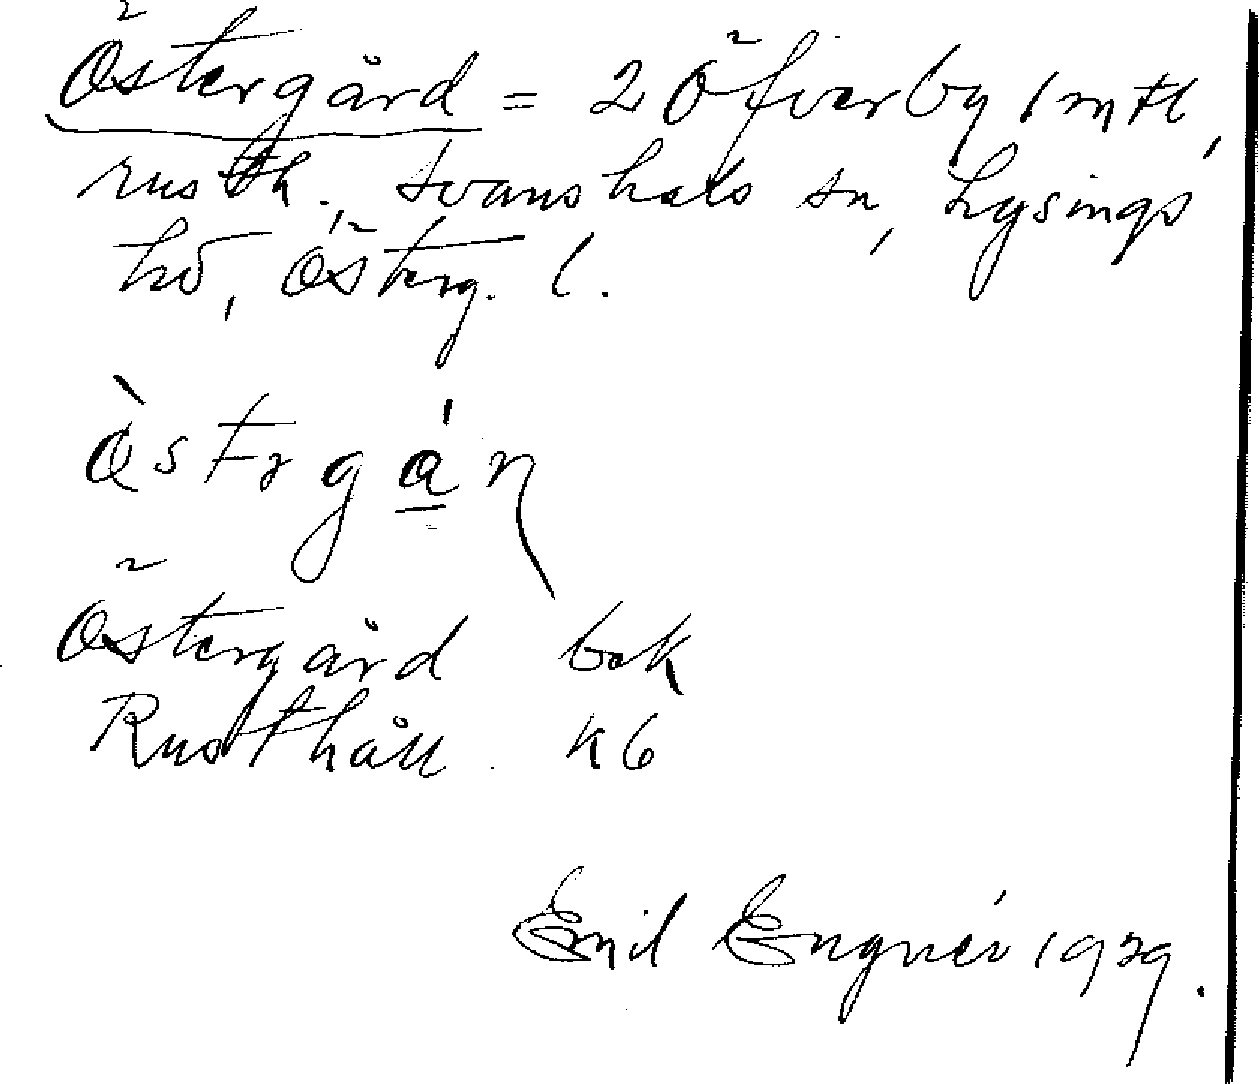 Östergård = 2 Öfverby 1 mtl,
rusth., Svanshals sn, Lysings
hd, Österg. l.
östrgán
Östergård bok
Rusthåll k6
Emil Engnér 1929.